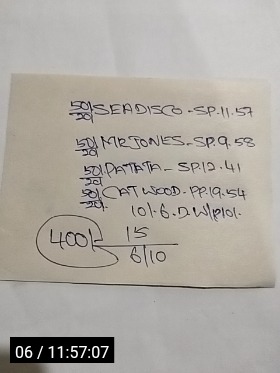 50/20 SEADISCO - SP. 11.57
50/20 MRJONES - SP. 9.58
50/20 PATATA - SP. 12.41
50/20 CATWOOD - PP. 19.54
10/. 6. D. W/P101.
400/- 15
6/10
06 / 11:57:07